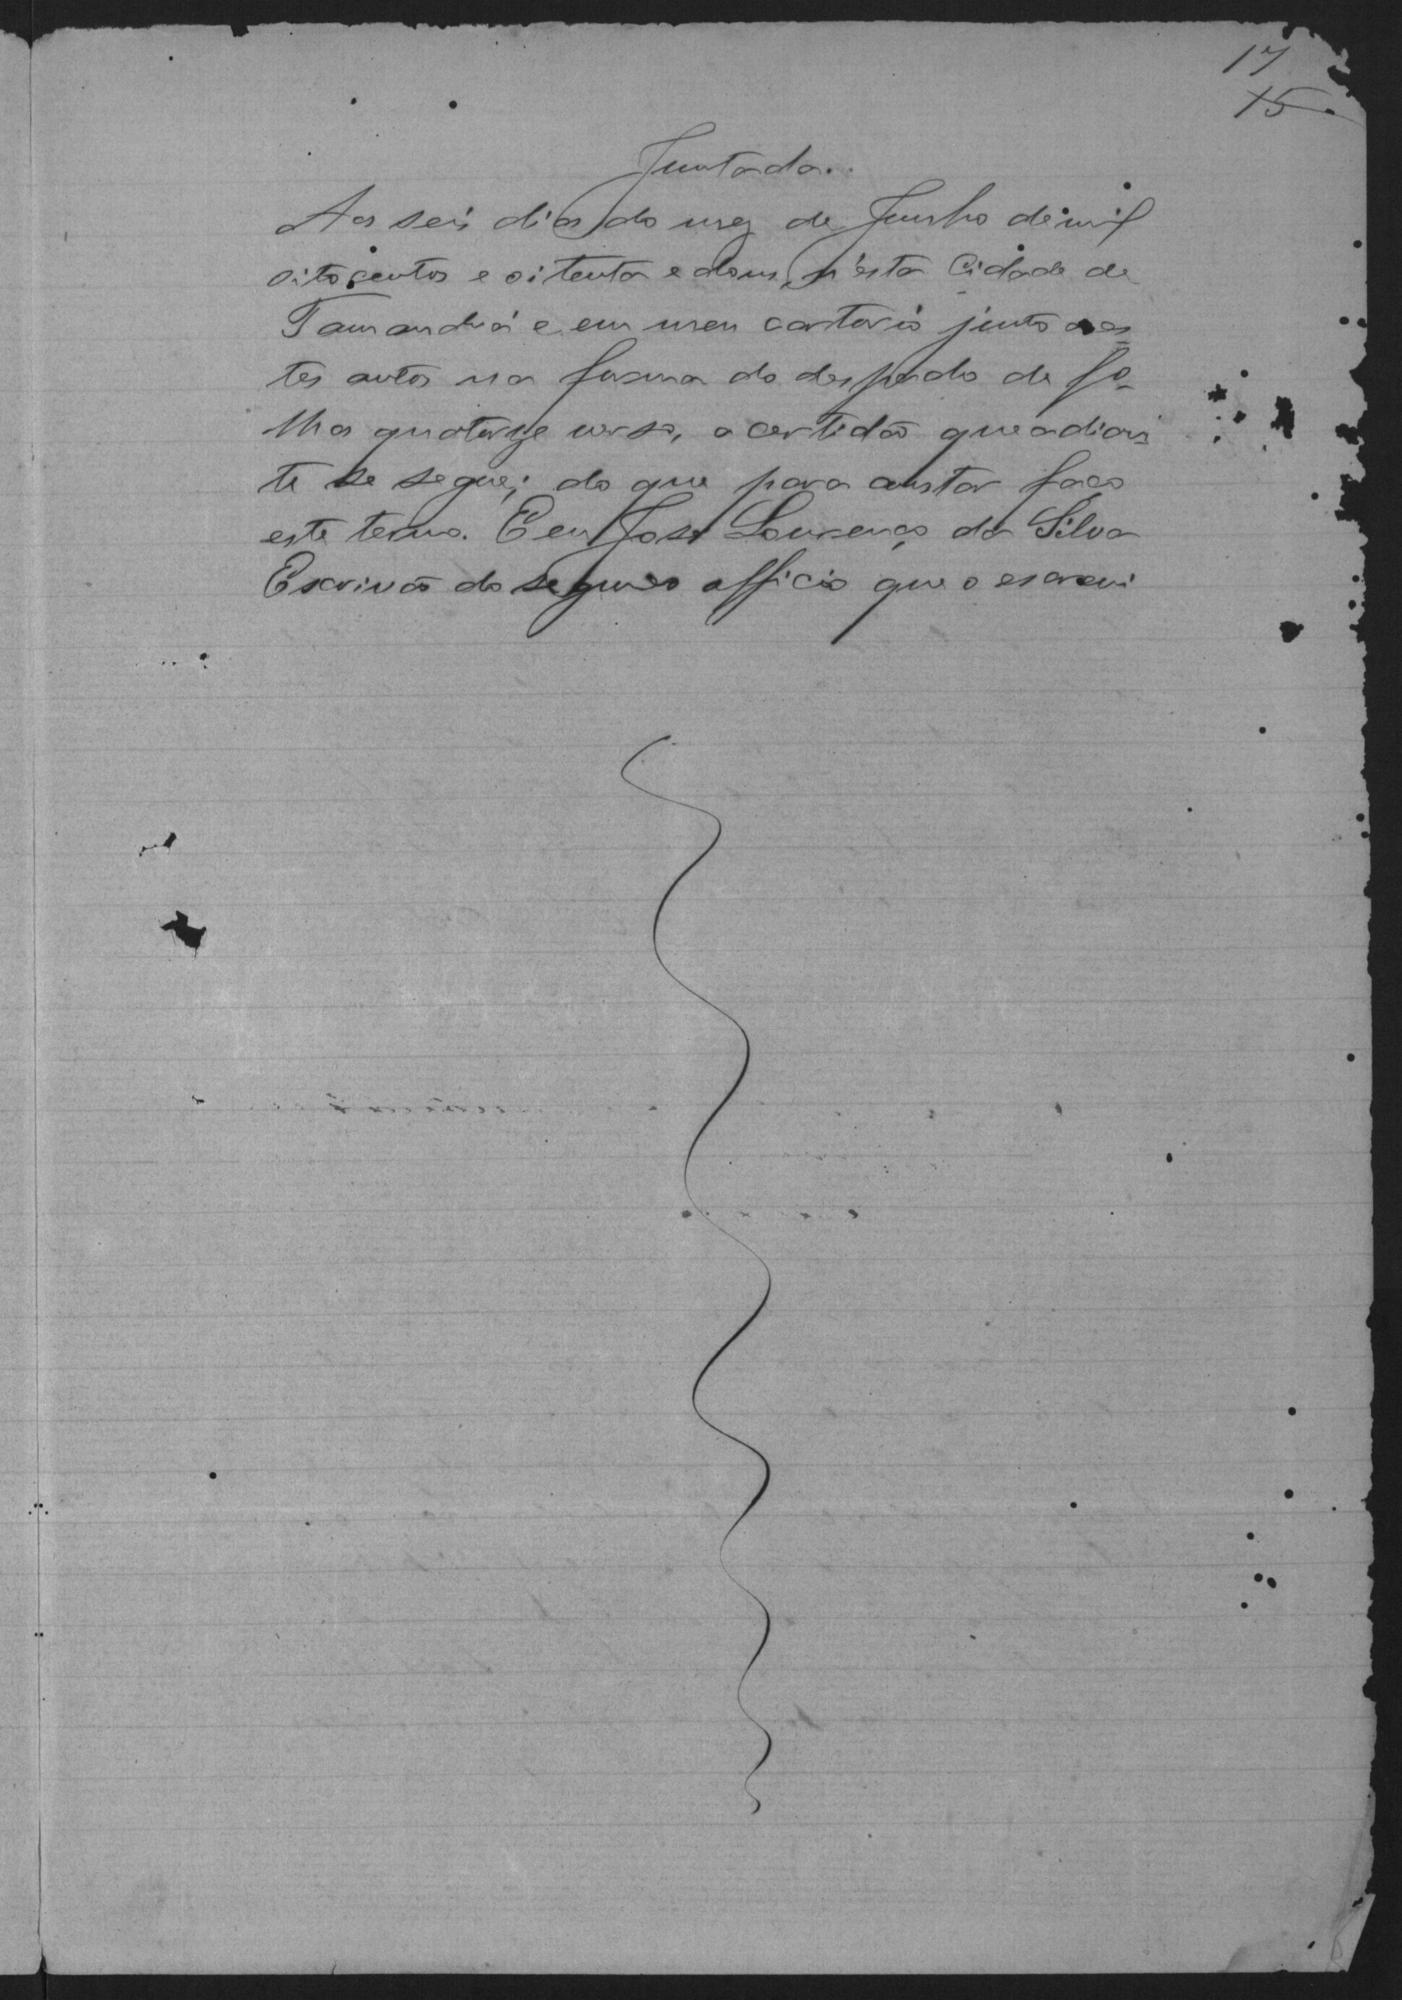 17
15
Juntada.
Aos seis dias do mez de Junho de mil
oito centos e oitenta e dous, n'esta Cidade de
Tamanduá e em meu cartorio junto a es
tes autos na forma do despacho de fo-
lhas quatorze verso, a certidão que adian
te se segue; do que para constar faço
este termo. E eu José Lourenço da Silva
Escrivão do segundo officio que o escrevi